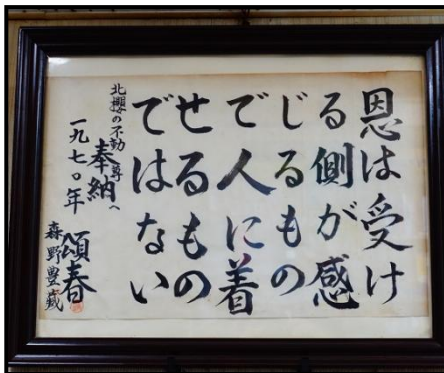 恩は受け
る側が感
じるもの
で人に着
せるもの
ではない
北櫻の不動尊へ
奉納
一九七〇年
頌春
森野豊